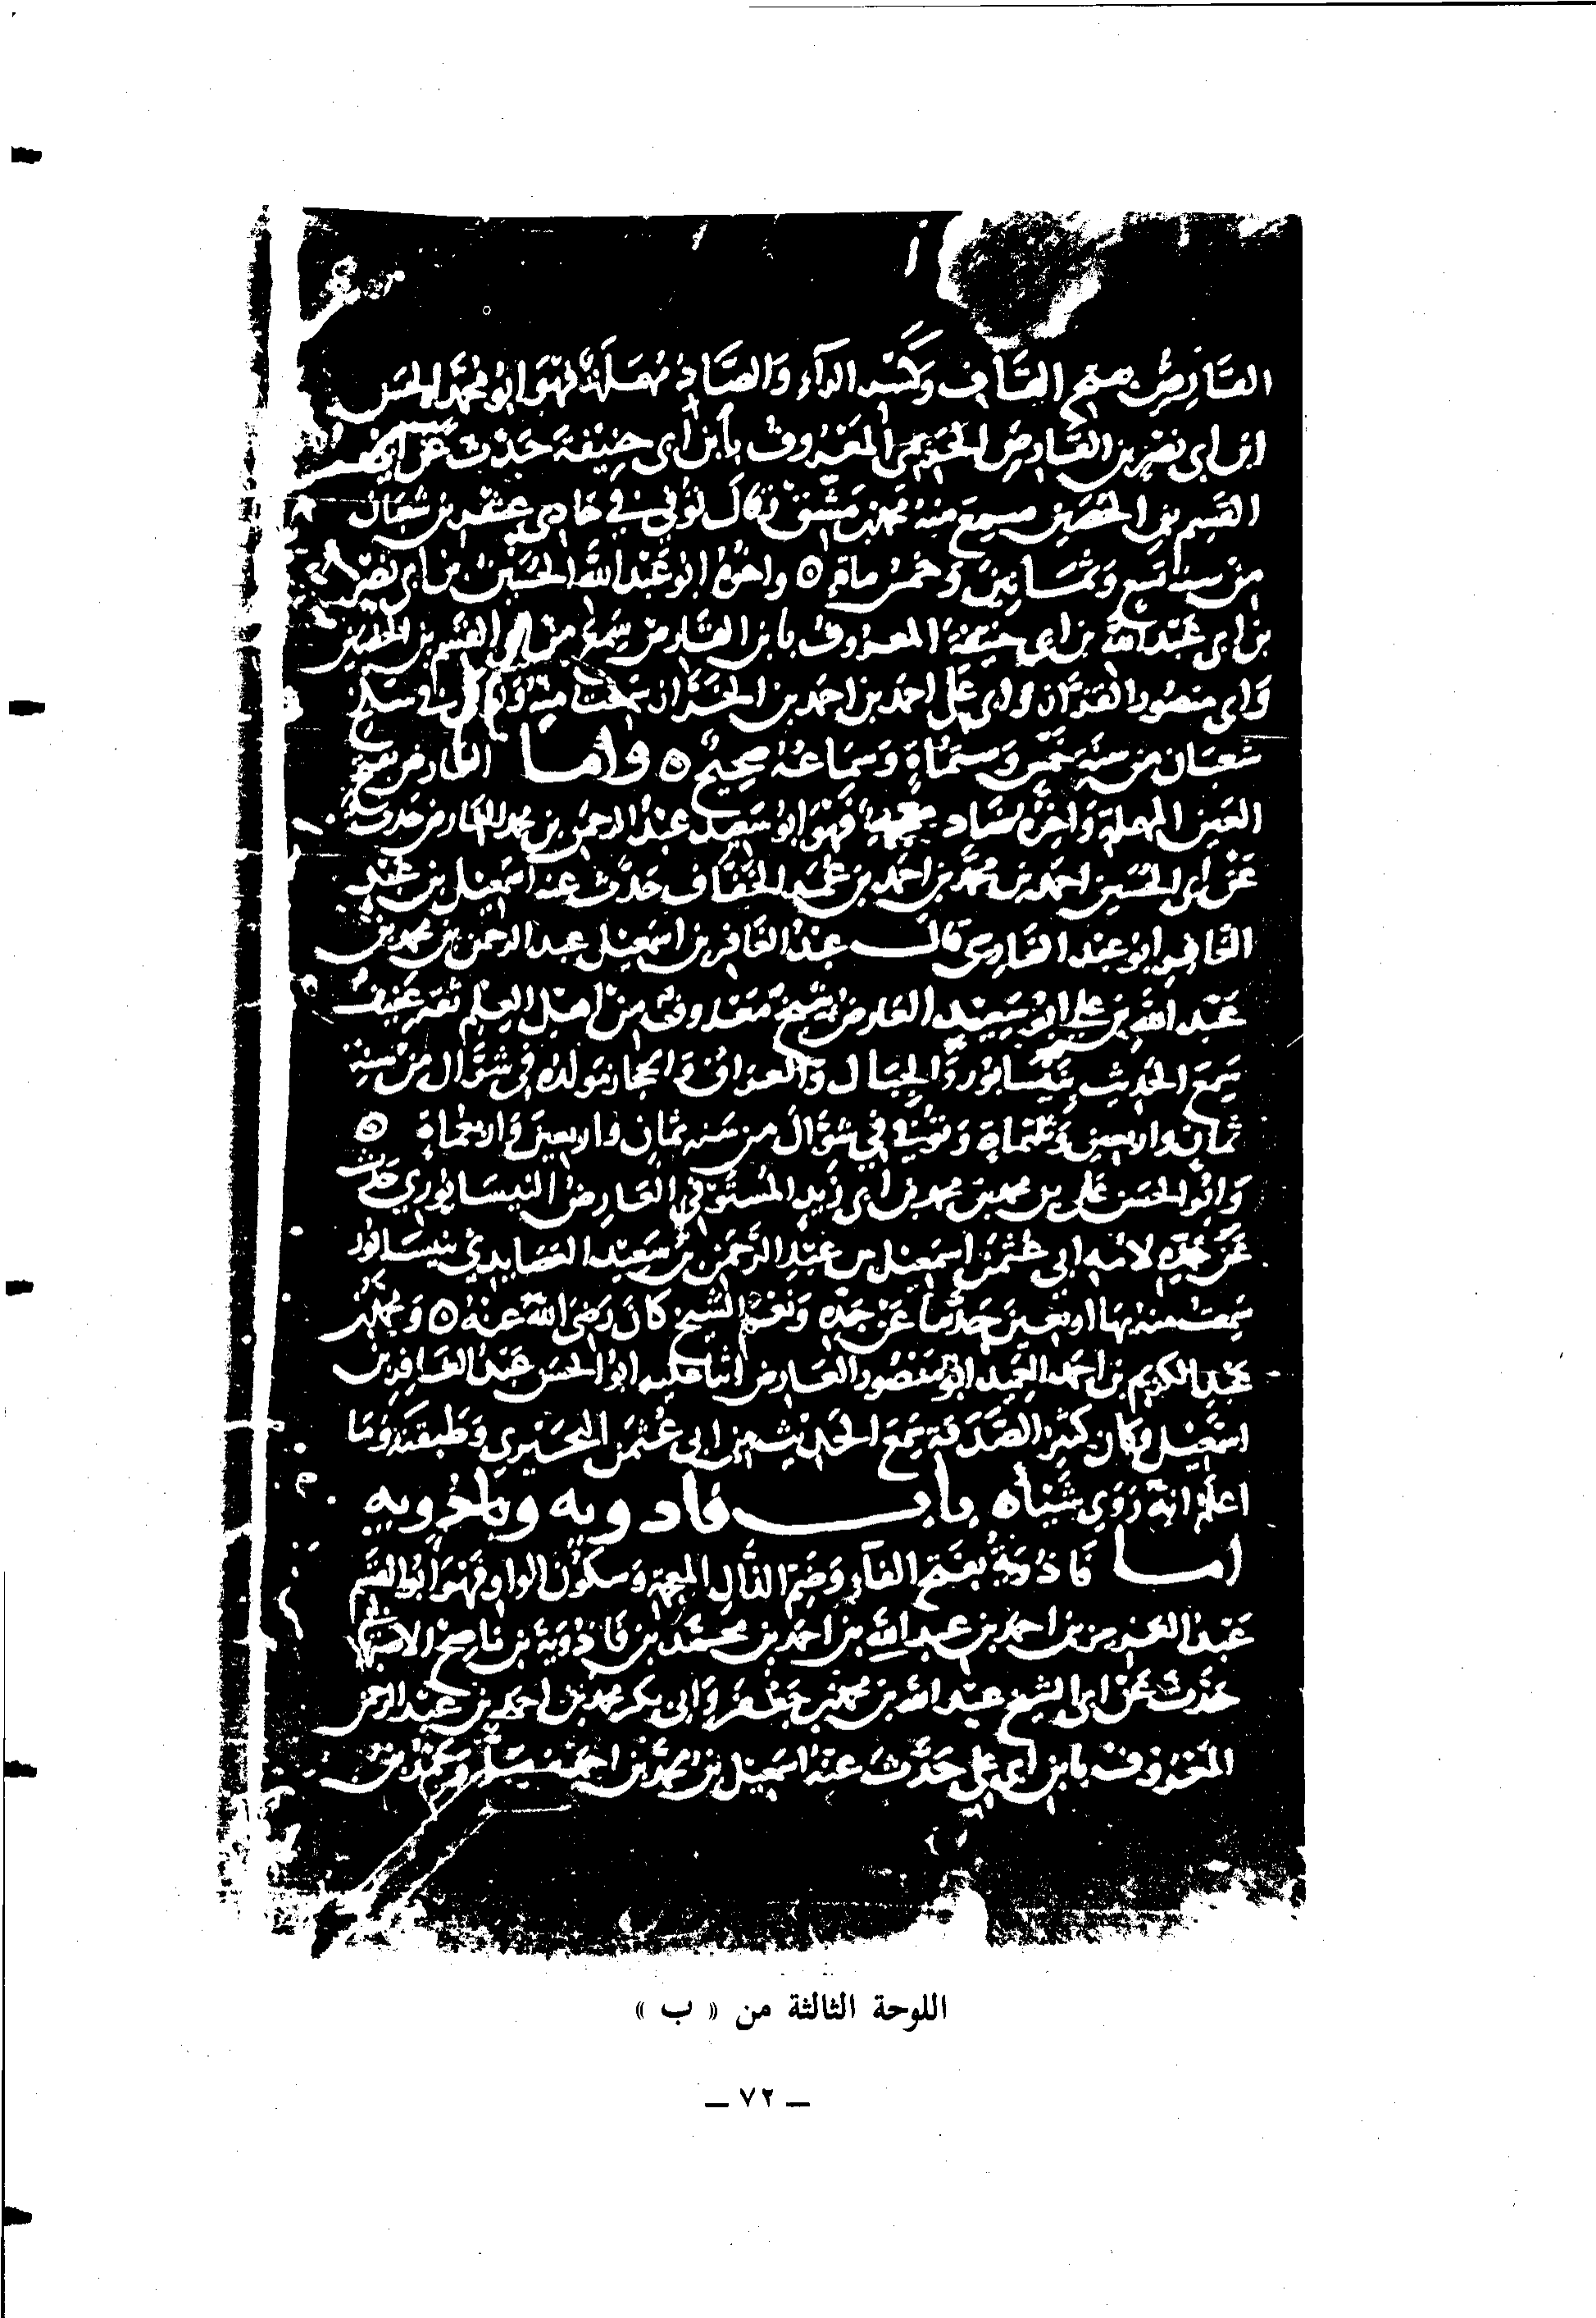 القارص بفتح القاف وكسر الراء والصاد مهملة فهو ابو محمد الحسن
ابن ابي نصر بن القارص الحريمي المعروف بابن ابي حنيفة حدث عن
القسم بن الحصين سمع منه محمد بن مشق وقال توفي في حادي عشر من شعبان
من سنة تسع وثمانين وخمس ماة ٥ واخوه ابو عبد الله الحسين بن ابي نصر
بن ابي عبد الله بن ابي حنيفة المعروف بابن القارص سمع من ابي القسم بن الحصين
وابي منصور القزاز وابي علي احمد بن احمد بن الخراز سمعت منه وتوفي في سلخ
شعبان من سنة خمس وستماة وسماعه صحيح ٥ واما العارض بفتح
العين المهملة واخره ضاد معجمة فهو ابو سعيد عبد الرحمن بن محمد العارض حدث
عن ابي الحسين احمد بن محمد بن احمد بن عمر الخفاف حدث عنه اسمعيل بن عبد
الغافر ابو عبد الفارسي قال عبد الغافر بن اسمعيل عبد الرحمن بن محمد بن
عبد الله بن علي ابو سعيد العارض شيخ معروف من اهل العلم ثقة عفيف
سمع الحديث بنيسابور والجبال والعراق والحجاز مولده في شوال من سنة
ثمان واربعين وثلثماة وتوفي في شوال من سنه ثمان واربعين واربعماة ٥
وابو الحسن علي بن محمد بن محمد بن ابي زيد المستوفي العارض النيسابوري حدث
عن جده لامه ابي عثمن اسمعيل بن عبد الرحمن بن سعيد العصايدي بنيسابور
سمعت منه بها اربعين حديثا عن جده ونعم الشيخ كان رضي الله عنه ٥ ومحمد بن
عبد الكريم بن احمد العميد ابو منصور العارض اثنا عليه ابو الحسن عبد الغافر بن
اسمعيل وكان كثير الصدقة سمع الحديث من ابي عثمن البحيري وطبقته وما
اعلم انه روي شيئا ٥ باب فاذويه وباذويه
اما فاذويه بفتح الفاء وضم الذال المعجمة وسكون الواو فهو ابو القسم
عبد العزيز بن احمد بن عبد الله بن احمد بن محمد بن فاذويه بن ناصح
حدث عن ابي الشيخ عبد الله بن محمد بن جعفر وابي بكر محمد بن احمد بن عبد الرحمن
المعروف بابن ابي علي حدث عنه اسمعيل بن محمد بن احمد بن
اللوحة الثالثة من « ب »
ــ ٧٢ ــ